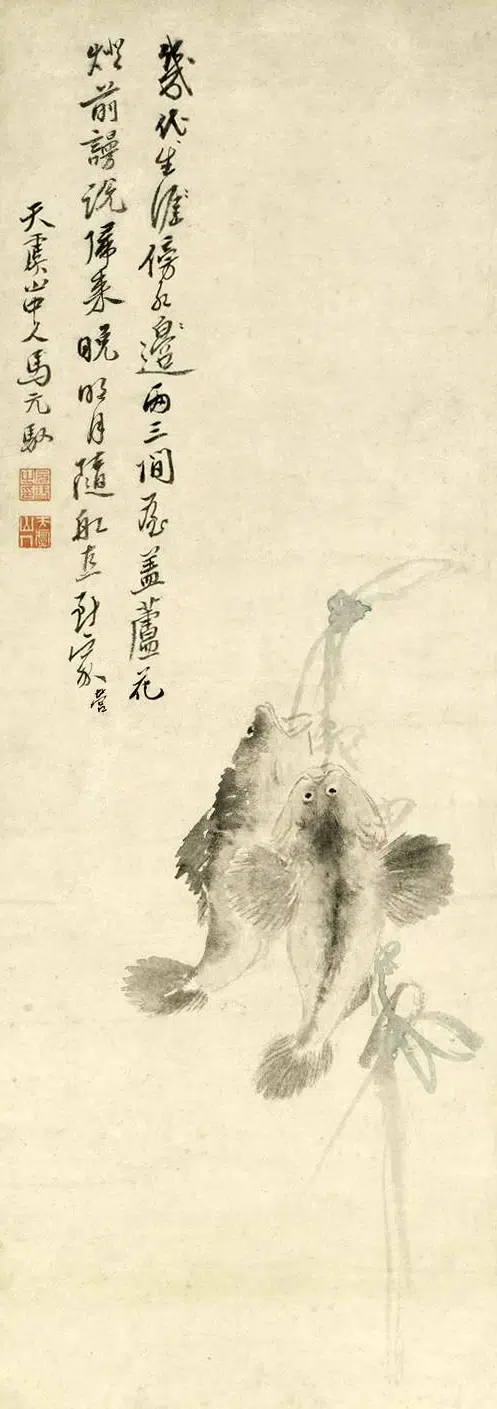 幾代生涯傍水邊兩三間屋蓋蘆花
燈前謾說歸來晚明月隨舡直到家
營
天虞山中人馬元馭
天虞山人